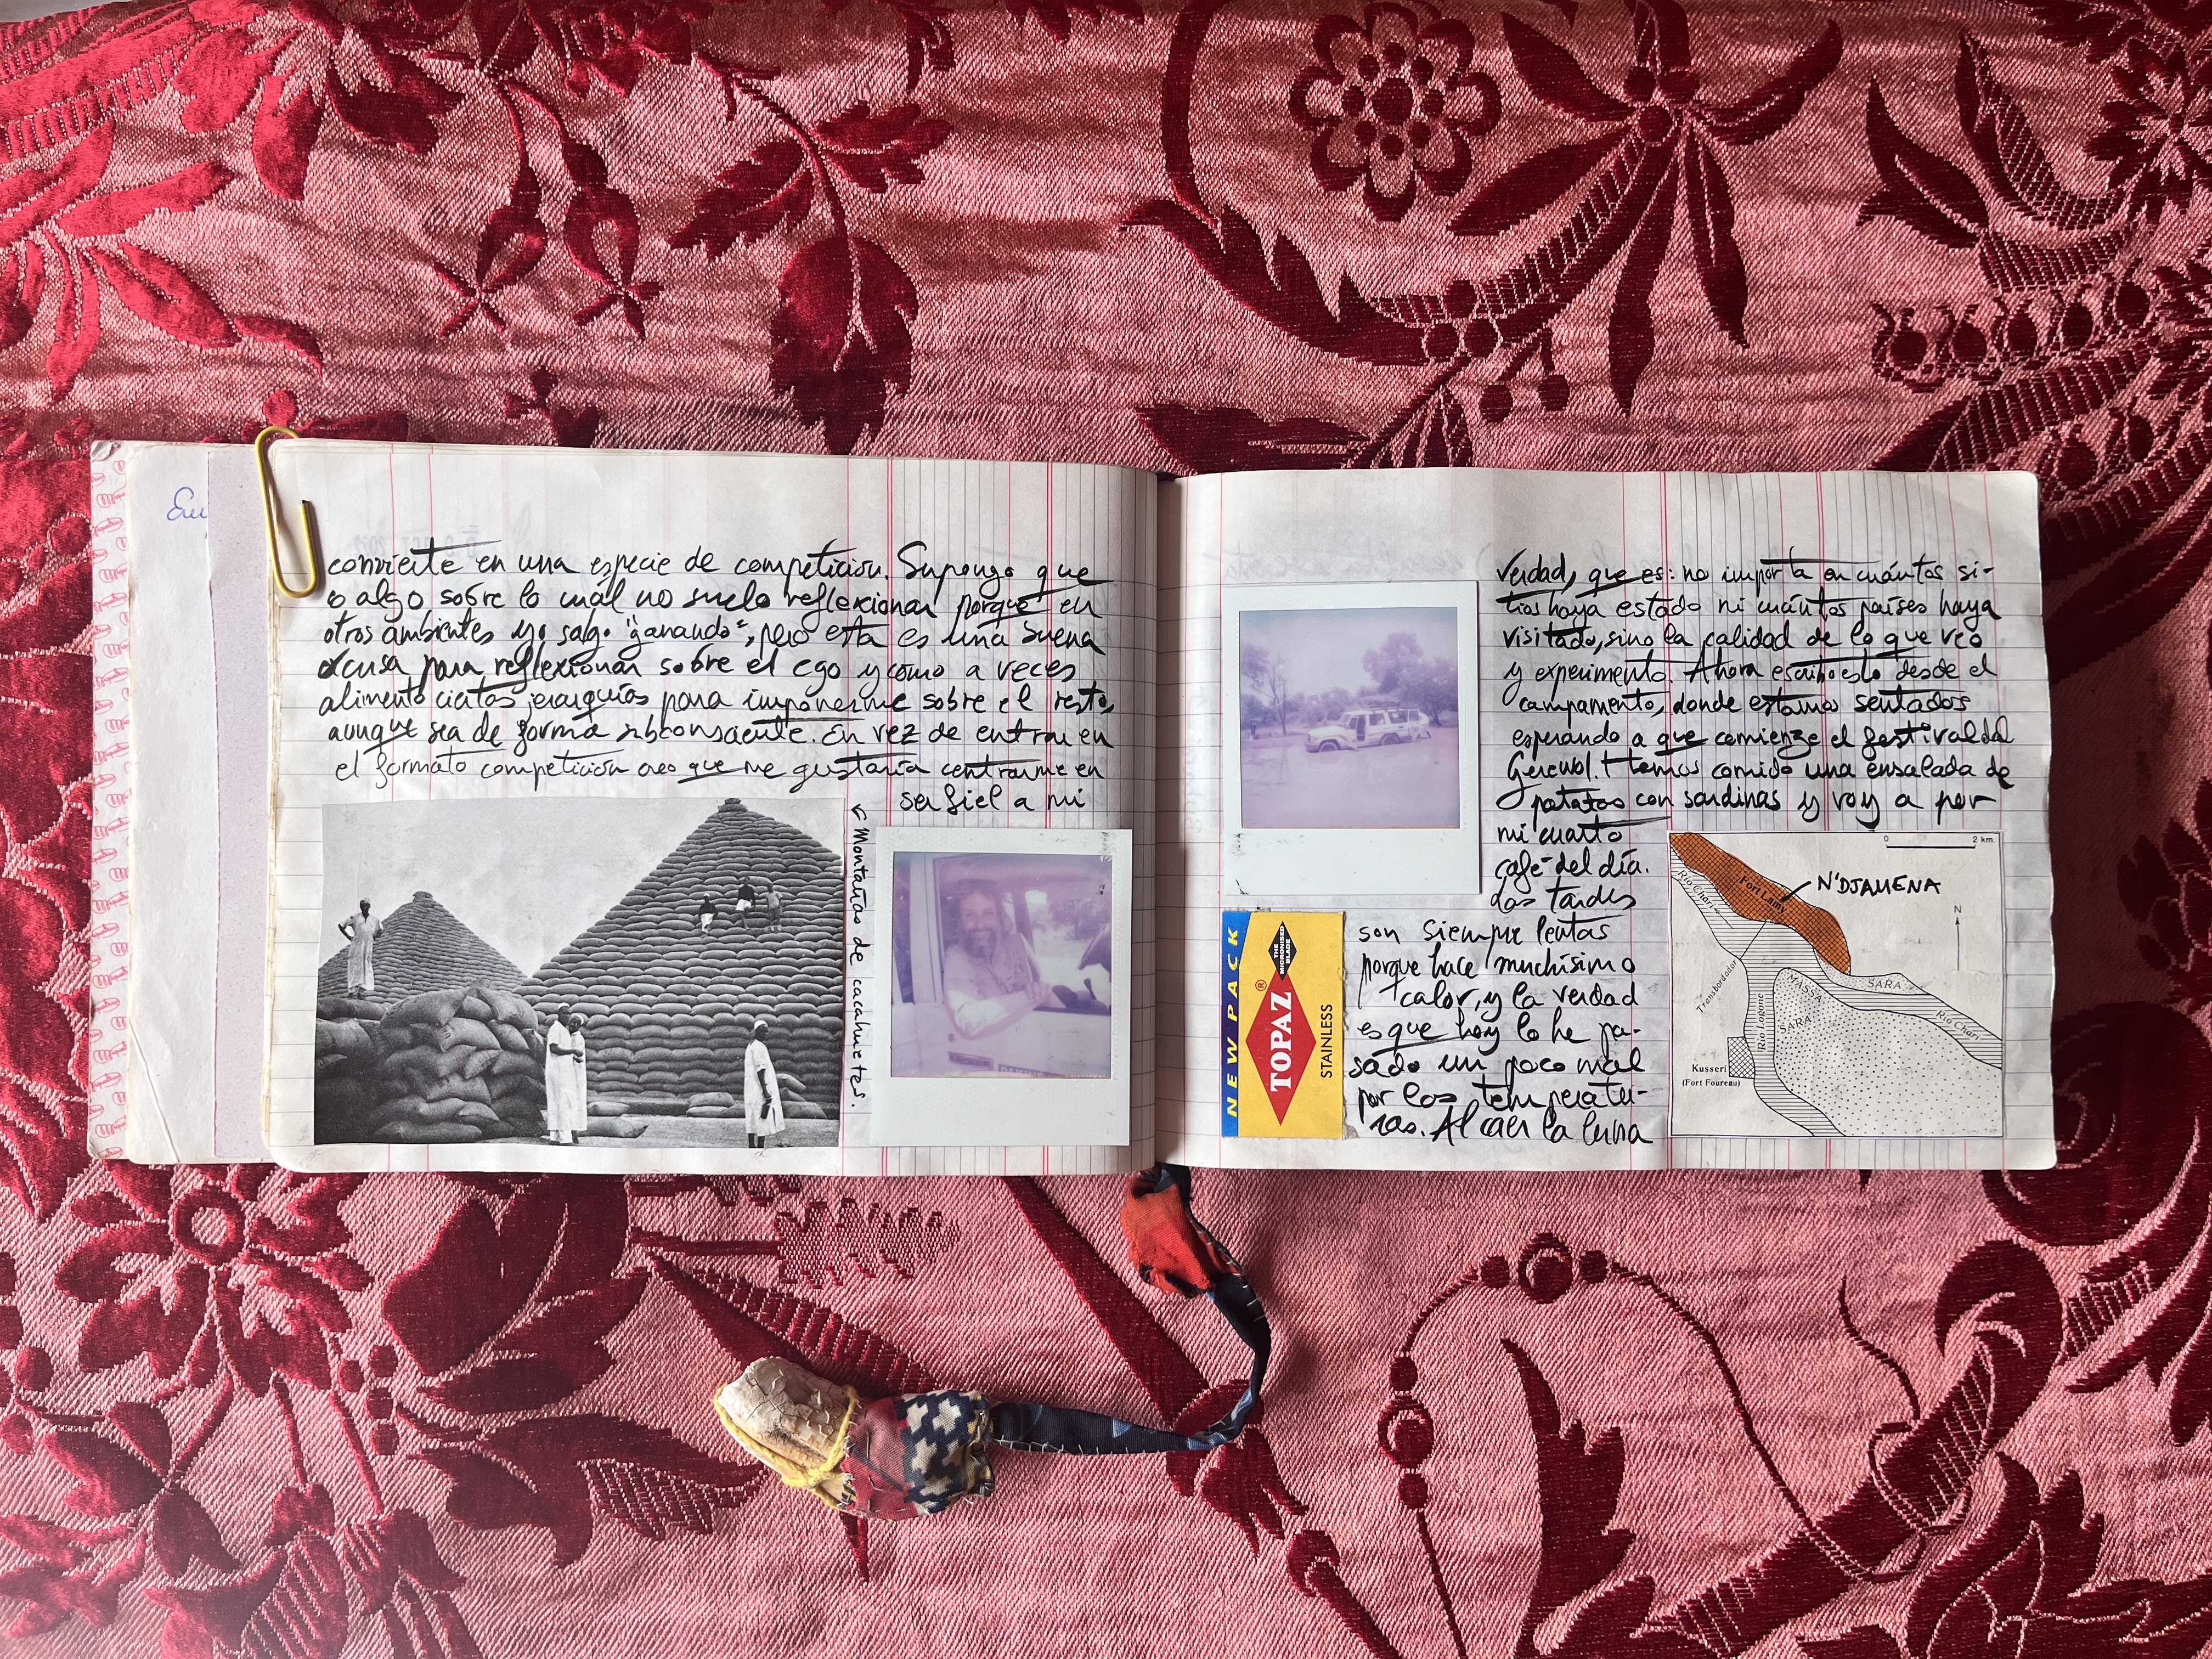 convierte en una especie de competición. Supongo que
es algo sobre lo cuál no suelo reflexionar porque en
otros ambientes yo salgo "ganando", pero esta es una buena
excusa para reflexionar sobre el ego y cómo a veces
alimento ciertas jerarquías para imponerme sobre el resto,
aunque sea de forma subconsciente. En vez de entrar en
el formato competición creo que me gustaría centrarme en
ser fiel a mi
← Montañas de cacahuetes.
verdad, que es: no importa en cuántos si-
tios haya estado ni cuántos países haya
visitado, sino la calidad de lo que veo
y experimento. Ahora escribo esto desde el
campamento, donde estamos sentados
esperando a que comience el festival del
Gerewol. Hemos comido una ensalada de
patatas con sardinas y voy a por
mi cuarto
café del día.
Las tardes
son siempre lentas
porque hace muchísimo
calor, y la verdad
es que hoy lo he pa-
sado un poco mal
por las temperatu-
ras. Al caer la luna
NEW PACK
TOPAZ®
THE MICRONISED BLADE
STAINLESS
0 2 km.
N'DJAMENA
Fort Lamy
Rio Chari
N
Transbordador
Rio Logone
MASSA
SARA
SARA
Rio Chari
Kusseri
(Fort Foureau)